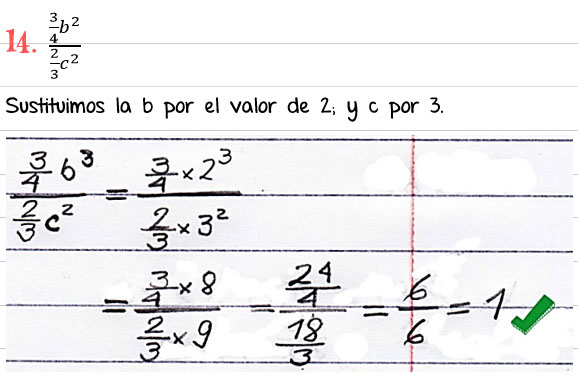 14. \frac{\frac{3}{4}b^2}{\frac{2}{3}c^2}
Sustituimos la b por el valor de 2; y c por 3.
\frac{\frac{3}{4}b^3}{\frac{2}{3}c^2} = \frac{\frac{3}{4}×2^3}{\frac{2}{3}×3^2}
= \frac{\frac{3}{4}×8}{\frac{2}{3}×9} = \frac{\frac{24}{4}}{\frac{18}{3}} = \frac{6}{6} = 1